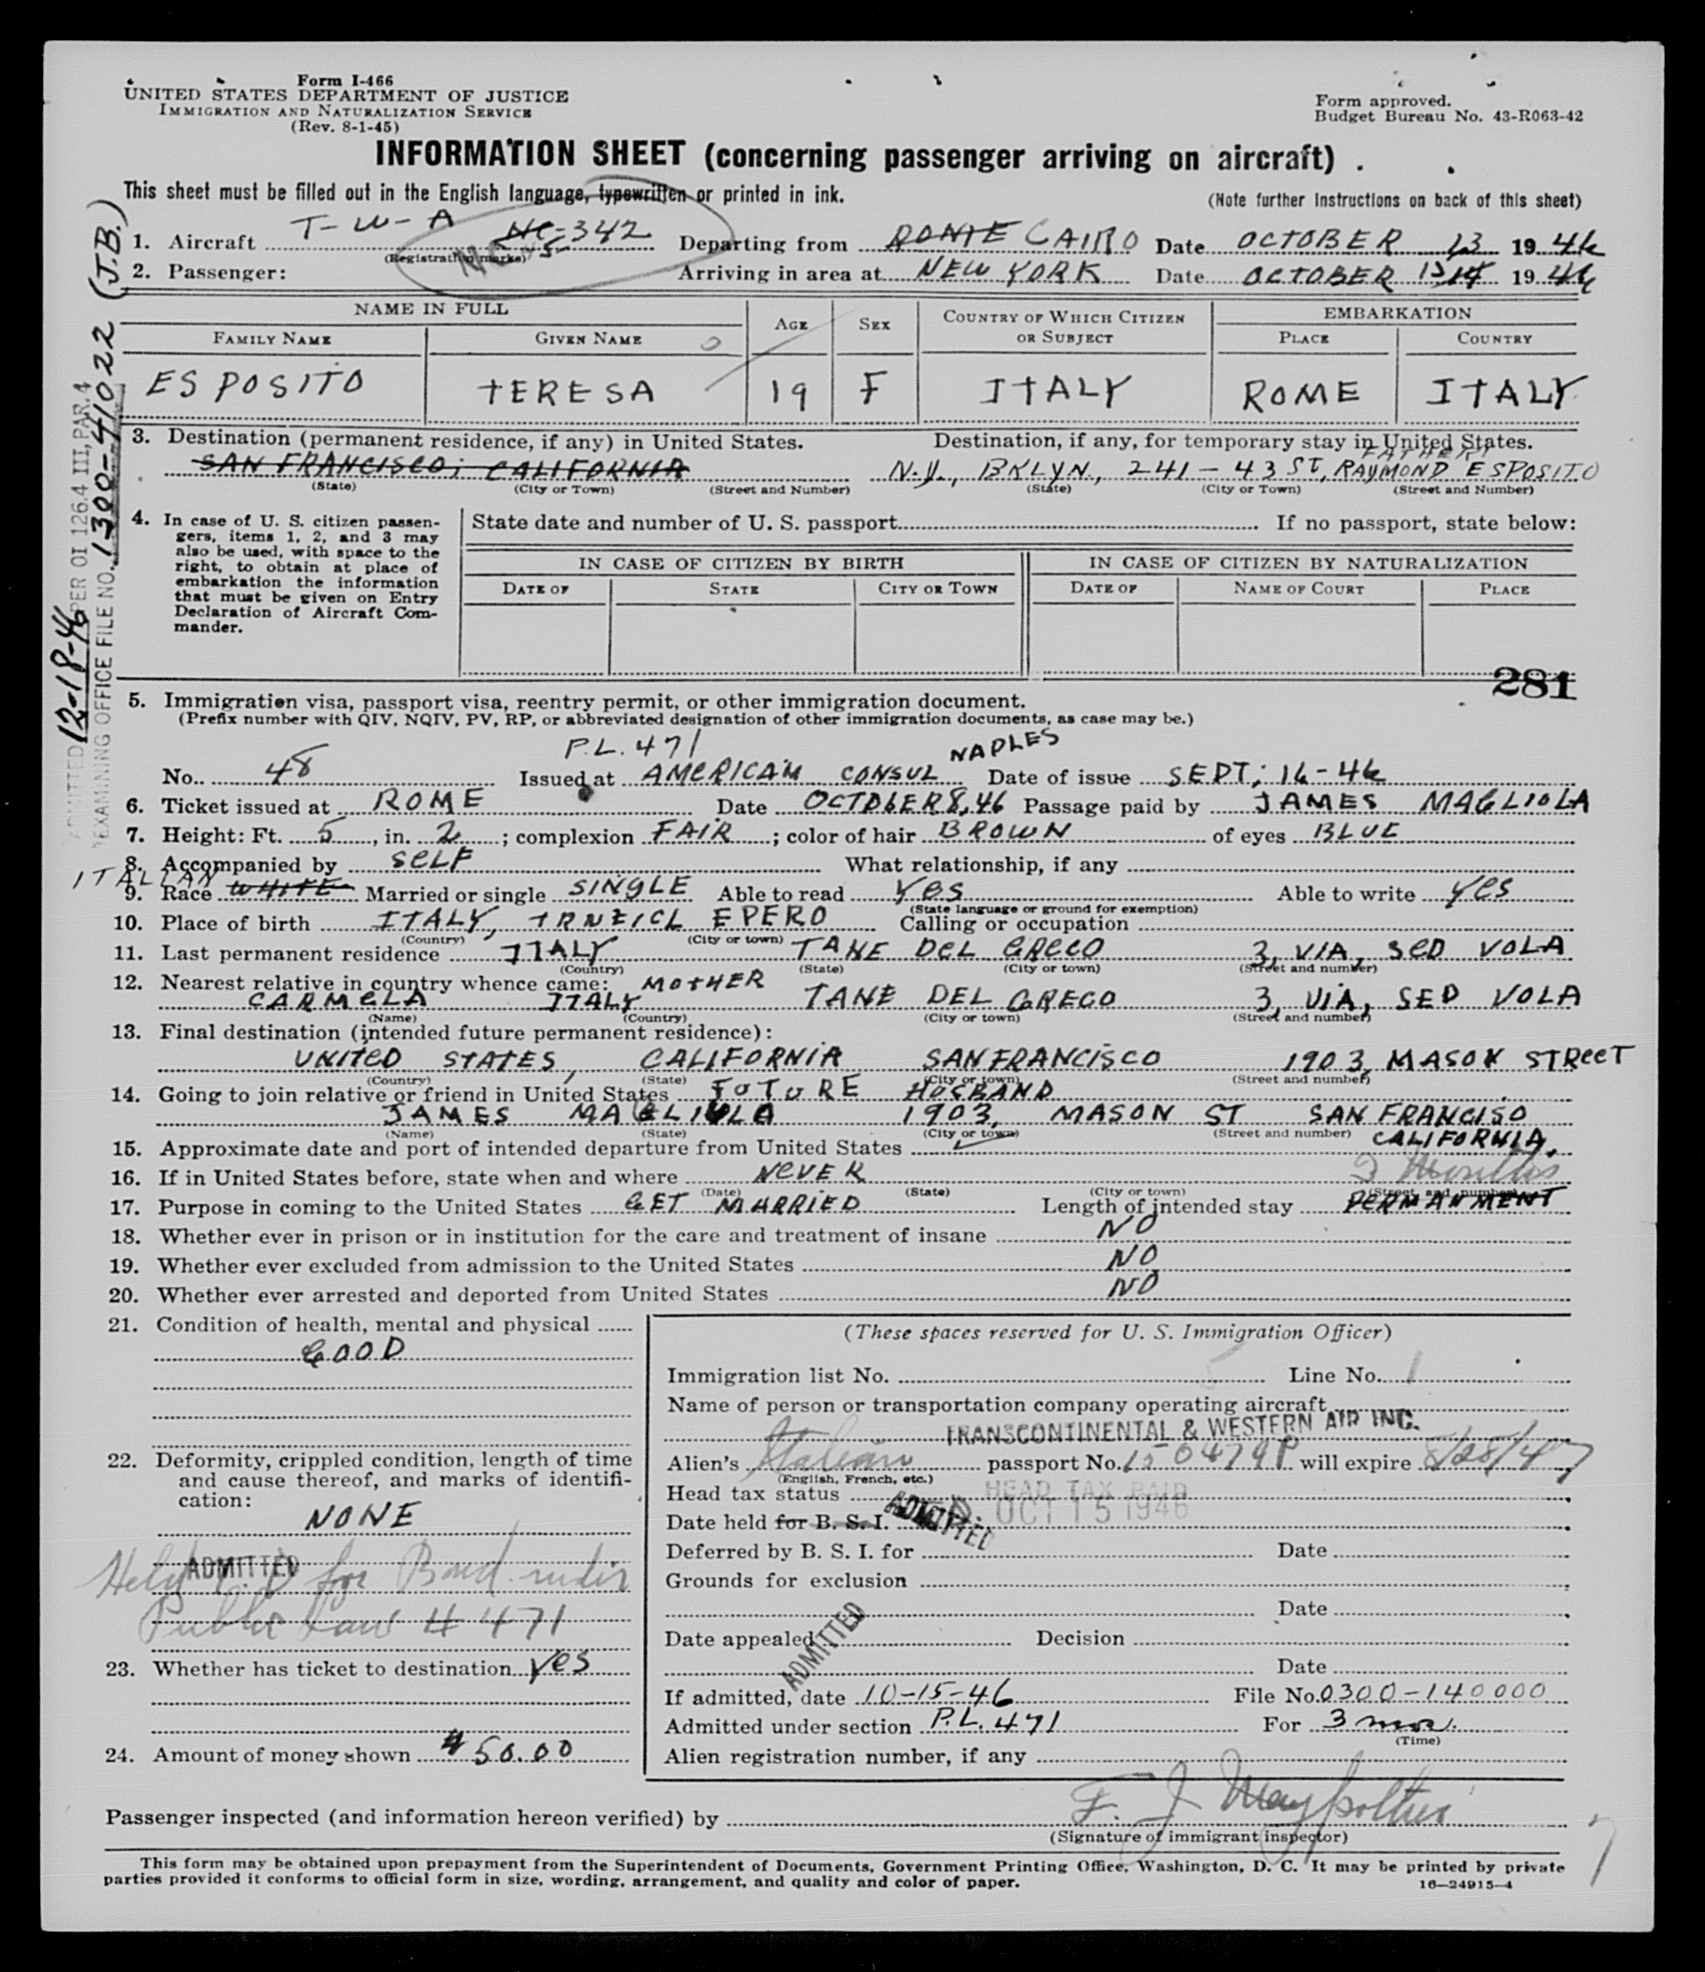 Form I-466
UNITED STATES DEPARTMENT OF JUSTICE
IMMIGRATION AND NATURALIZATION SERVICE
(Rev. 8-1-45)
Form approved.
Budget Bureau No. 43-R063-42
INFORMATION SHEET (concerning passenger arriving on aircraft)
This sheet must be filled out in the English language, typewritten or printed in ink.
(Note further instructions on back of this sheet)
1. Aircraft T-W-A NC-342 Departing from ROME CAIRO Date OCTOBER 13 1946
(Registration marks)
2. Passenger: Arriving in area at NEW YORK Date OCTOBER 15 1946
NAME IN FULL AGE SEX COUNTRY OF WHICH CITIZEN OR SUBJECT EMBARKATION
FAMILY NAME GIVEN NAME PLACE COUNTRY
ESPOSITO TERESA 19 F ITALY ROME ITALY
3. Destination (permanent residence, if any) in United States. Destination, if any, for temporary stay in United States.
FATHER
SAN FRANCISCO; CALIFORNIA N.Y., BKLYN., 241-43 ST, RAYMOND ESPOSITO
(State) (City or Town) (Street and Number) (State) (City or Town) (Street and Number)
4. In case of U. S. citizen passengers, items 1, 2, and 3 may also be used, with space to the right, to obtain at place of embarkation the information that must be given on Entry Declaration of Aircraft Commander.
State date and number of U. S. passport If no passport, state below:
IN CASE OF CITIZEN BY BIRTH IN CASE OF CITIZEN BY NATURALIZATION
DATE OF STATE CITY OR TOWN DATE OF NAME OF COURT PLACE
281
5. Immigration visa, passport visa, reentry permit, or other immigration document.
(Prefix number with QIV, NQIV, PV, RP, or abbreviated designation of other immigration documents, as case may be.)
P.L. 471 NAPLES
No. 48 Issued at AMERICAN CONSUL Date of issue SEPT; 16-46
6. Ticket issued at ROME Date OCTOBER 8, 46 Passage paid by JAMES MAGLIOLA
7. Height: Ft. 5, in. 2; complexion FAIR; color of hair BROWN of eyes BLUE
8. Accompanied by SELF What relationship, if any
ITALIAN
9. Race WHITE Married or single SINGLE Able to read YES Able to write YES
(State language or ground for exemption)
10. Place of birth ITALY, EPERO Calling or occupation
(Country) (City or town)
11. Last permanent residence ITALY TANE DEL GRECO 3, VIA, SED VOLA
(Country) (State) (City or town) (Street and number)
12. Nearest relative in country whence came: MOTHER
CARMELA ITALY TANE DEL GRECO 3, VIA, SED VOLA
(Name) (Country) (City or town) (Street and number)
13. Final destination (intended future permanent residence):
UNITED STATES, CALIFORNIA SANFRANCISCO 1903, MASON STREET
(Country) (State) (City or town) (Street and number)
14. Going to join relative or friend in United States FUTURE HUSBAND
JAMES MAGLIOLA 1903, MASON ST SAN FRANCISO
(Name) (State) (City or town) (Street and number) CALIFORNIA.
15. Approximate date and port of intended departure from United States
16. If in United States before, state when and where NEVER
(Date) (State) (City or town) (Street and number)
3 Months
17. Purpose in coming to the United States GET MARRIED Length of intended stay PERMANMENT
18. Whether ever in prison or in institution for the care and treatment of insane NO
19. Whether ever excluded from admission to the United States NO
20. Whether ever arrested and deported from United States NO
21. Condition of health, mental and physical
GOOD
22. Deformity, crippled condition, length of time and cause thereof, and marks of identification:
NONE
ADMITTED
Held for Bond under
Public Law # 471
23. Whether has ticket to destination YES
24. Amount of money shown $50.00
(These spaces reserved for U. S. Immigration Officer)
Immigration list No. 5 Line No. 1
Name of person or transportation company operating aircraft
TRANSCONTINENTAL & WESTERN AIR INC.
Alien's Italian passport No. 150474P will expire 8/28/47
(English, French, etc.)
Head tax status HEAD TAX PAID
Date held for B. S. I. OCT 15 1946
ADMITTED
Deferred by B. S. I. for Date
Grounds for exclusion
Date
Date appealed Decision
ADMITTED
Date
If admitted, date 10-15-46 File No. 0300-140000
Admitted under section P.L. 471 For 3 mos.
(Time)
Alien registration number, if any
Passenger inspected (and information hereon verified) by F. J.
(Signature of immigrant inspector)
This form may be obtained upon prepayment from the Superintendent of Documents, Government Printing Office, Washington, D. C. It may be printed by private
parties provided it conforms to official form in size, wording, arrangement, and quality and color of paper.
16—24915-4
ADMITTED 12-18-46 PER OI 126.4 III, PAR. 4
EXAMINING OFFICE FILE NO. 1300-41022 (J.B.)